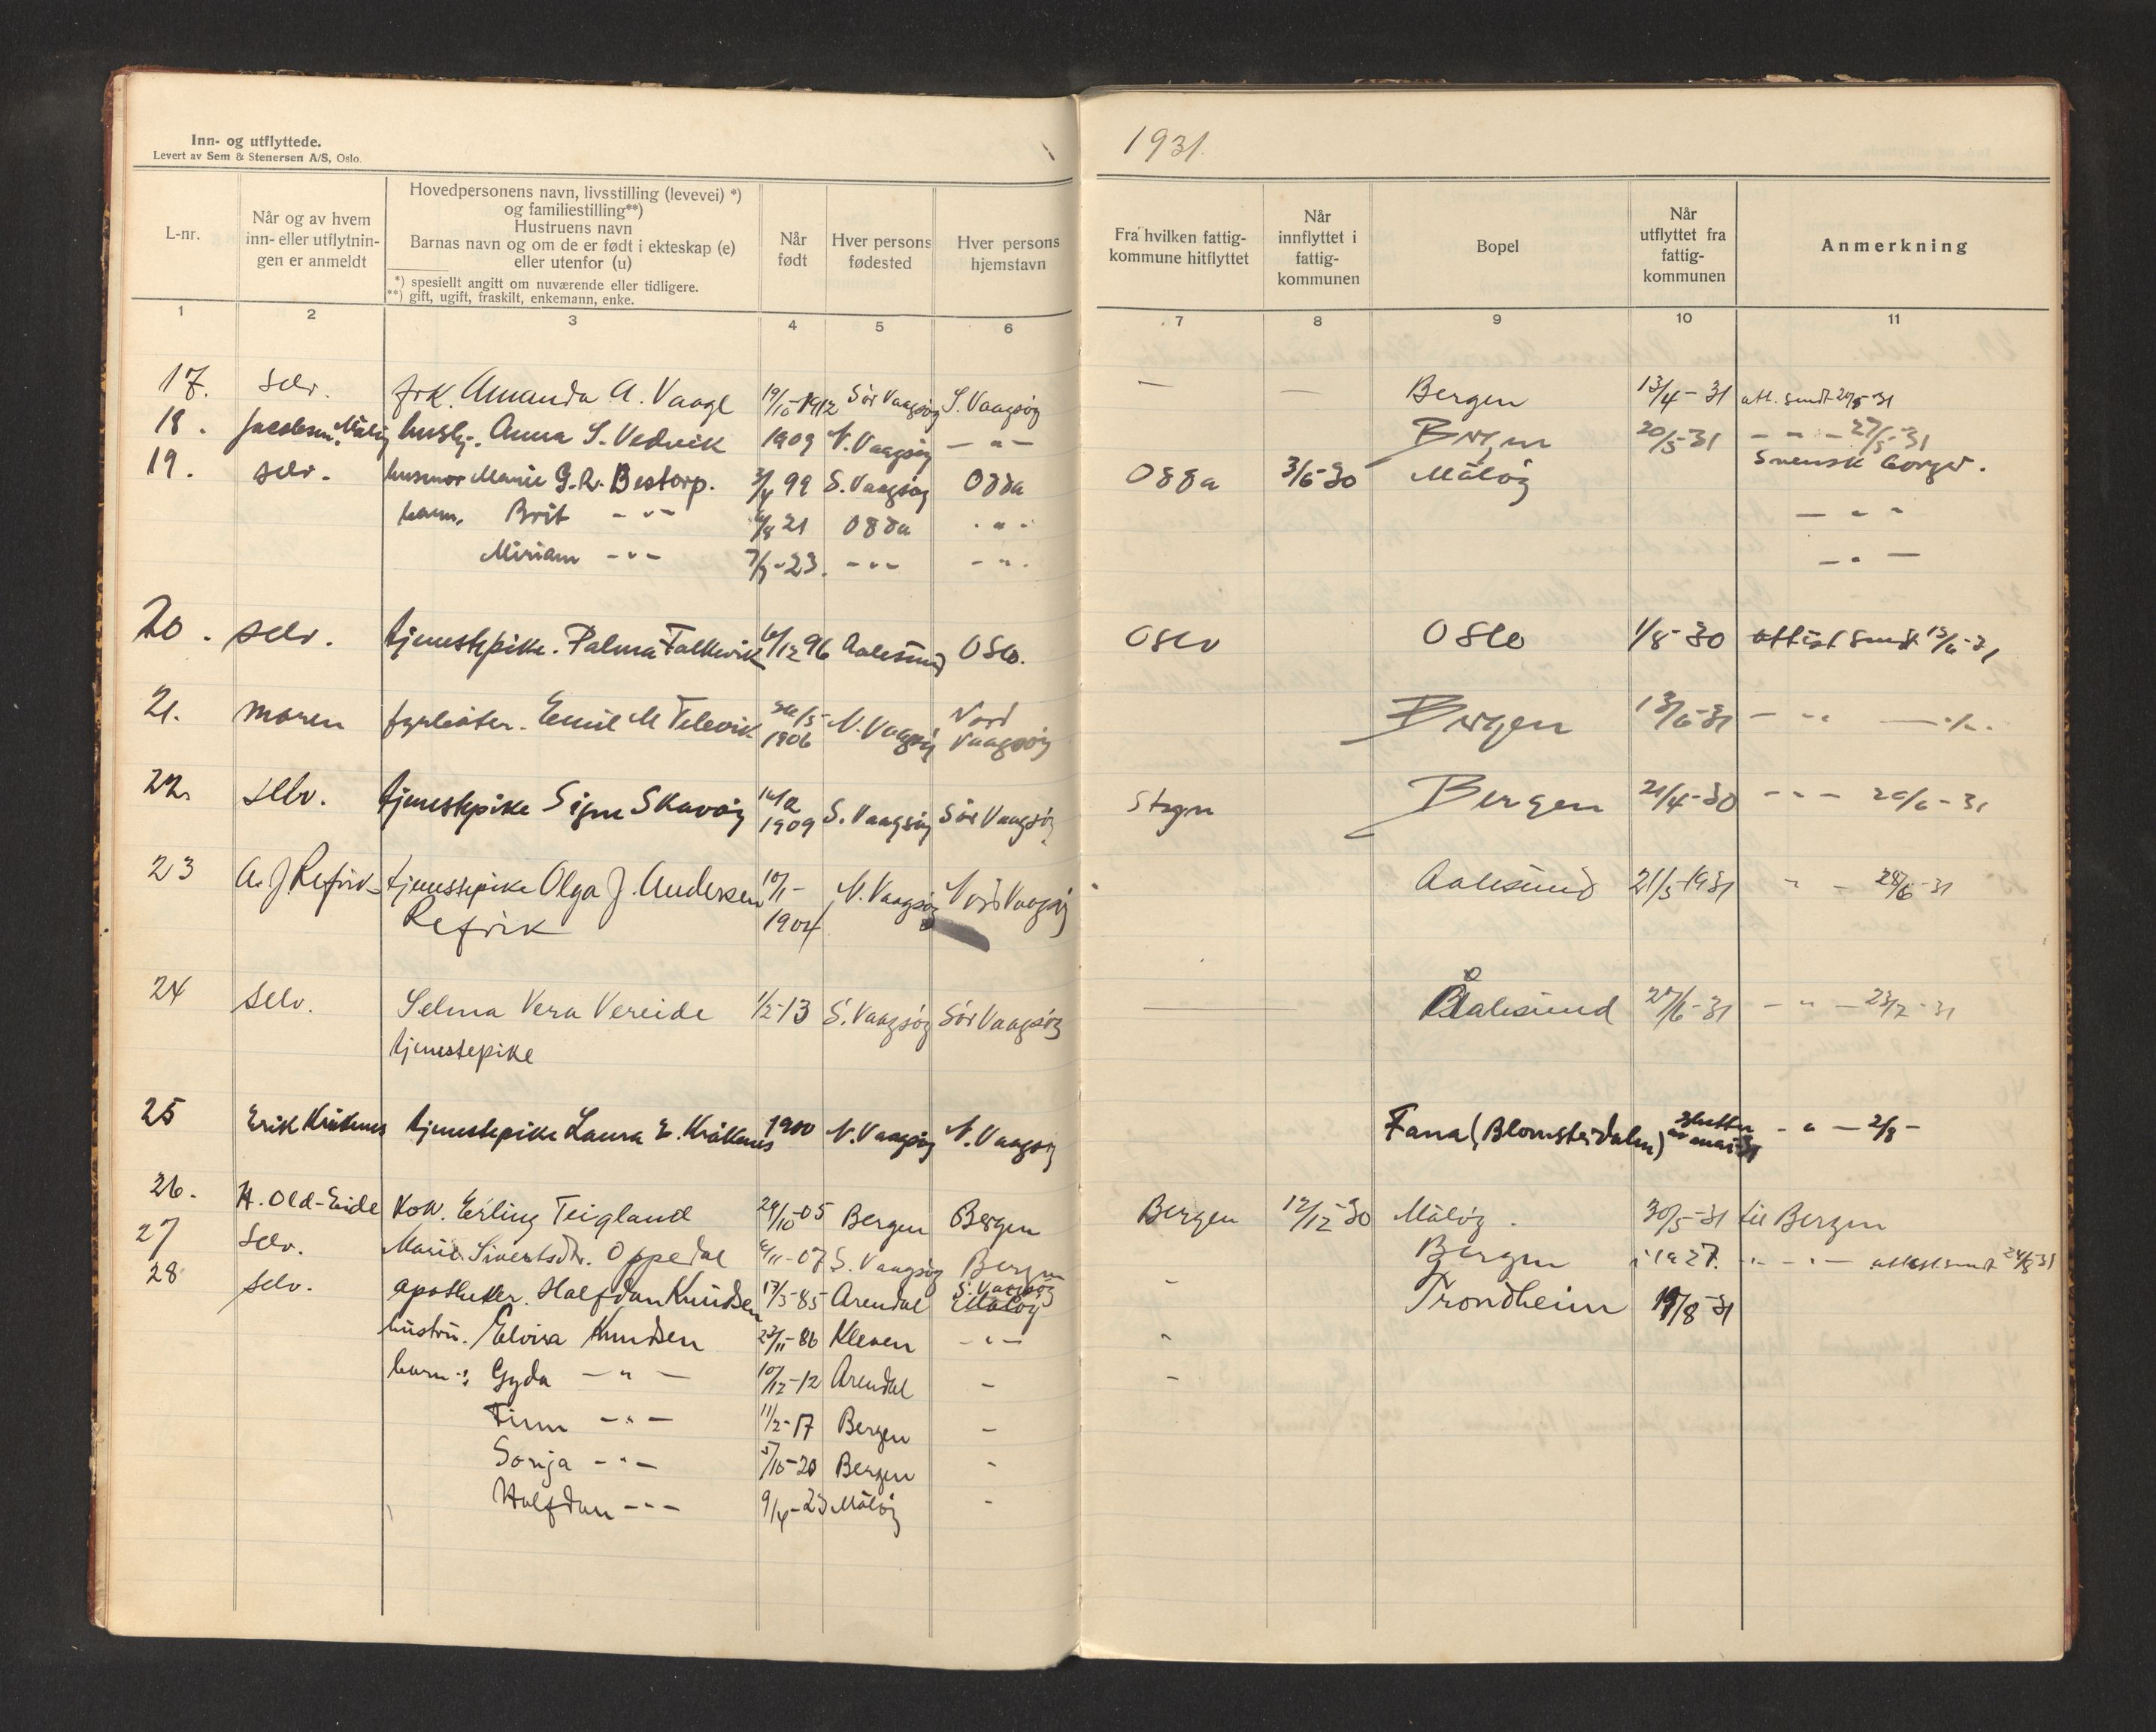 Inn- og utflyttede.
Levert av Sem & Stenersen A/S, Oslo.
1931.
L-nr.
Når og av hvem
inn- eller utflytnin-
gen er anmeldt
Hovedpersonens navn, livsstilling (levevei) *)
og familiestilling**)
Hustruens navn
Barnas navn og om de er født i ekteskap (e)
eller utenfor (u)
*) spesiellt angitt om nuværende eller tidligere.
**) gift, ugift, fraskilt, enkemann, enke.
Når
født
Hver persons
fødested
Hver persons
hjemstavn
Fra hvilken fattig-
kommune hitflyttet
Når
innflyttet i
fattig-
kommunen
Bopel
Når
utflyttet fra
fattig-
kommunen
Anmerkning
1 2 3 4 5 6 7 8 9 10 11
17. selv. frk. Amanda A. Vaage 19/10-1912 Sör Vaagsöy S. Vaagsöy — — Bergen 13/4-31 att. sendt 20/5-31
18. Jacobsen, Målöy hush. Anna S. Vedvik 1909 N. Vaagsöy — " — Bergen 20/5-31 — " — 27/5-31
19. selv. husmor Marie G. R. Bestorp. 3/4 99 S. Vaagsöy Odda Odda 3/6-30 Målöy Svensk borger.
barn. Brit - " - 6/8 21 Odda - " - — " "
Miriam - " - 7/9-23. - " - - " - — " —
20. selv. tjenestepike. Palma Falkevik 6/12 96 Aalesund Oslo. Oslo Oslo 1/8-30 attest sendt 13/6-31
21. moren fyrböter. Emil M Televik 26/5 1906 N. Vaagsöy Nord Vaagsöy Bergen 13/6-31 — " —
22. selv. tjenestepike Signe Skavöy 16/12 1909 S. Vaagsöy Sör Vaagsöy Stryn Bergen 21/4-30 - " - 20/6-31
23 A. J. Refvik tjenestepike Olga J. Andersen 10/11- N. Vaagsöy Nord Vaagsöy Aalesund 21/5-1931 " - 28/6-31
Refvik 1904
24 selv. Selma Vera Vereide 1/2-13 S. Vaagsöy Sör Vaagsöy — Aalesund 27/6-31 - " - 23/7-31
tjenestepike
25 Erik Kråkenes tjenestepike Laura E. Kråkenes 1900 N. Vaagsöy N. Vaagsöy Fana (Blomsterdalen) slutten av mai-31 - " - 2/8-
26. H. Old-Eide kok. Erling Teigland 29/10-05 Bergen Bergen Bergen 12/12-30 Målöy. 30/5-31 til Bergen
27 selv. Marie Sivertsdtr. Oppedal 6/11-07 S. Vaagsöy Bergen Bergen i 1927. - " - attest sendt 24/8-31
28 selv. apotheker. Halfdan Knudsen 17/5-85 Arendal S. Vaagsöy Målöy - Trondheim 19/8-31
hustru. Elvira Knudsen 23/11-86 Kleven - " - -
barn: Gyda — " — 10/12-12 Arendal - -
Finn — " — 11/2-17 Bergen -
Sonja - " - 5/10-20 Bergen -
Halfdan - " - 9/4-23 Målöy -